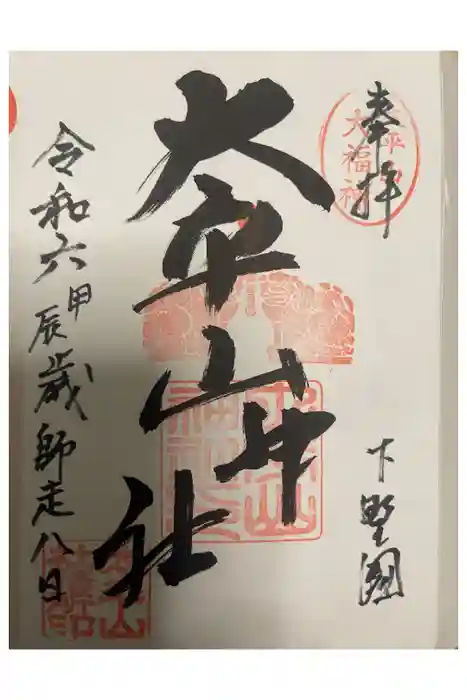 奉拝
大福神
下野國
大平山神社
令和六甲辰歳師走八日